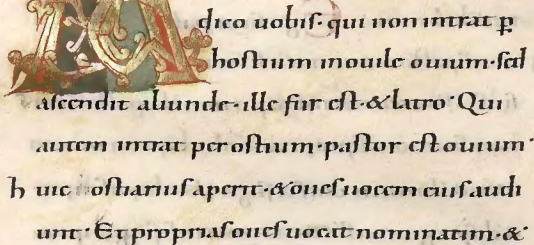 dico uobis· qui non intrat ꝑ
hostium in ouile ouium· sed
ascendit aliunde· ille fur est· & latro· Qui
autem intrat per ostium· pastor est ouium·
h uic ostiarius aperit· & oues uocem eius audi
unt· Et proprias oues uocat nominatim· &